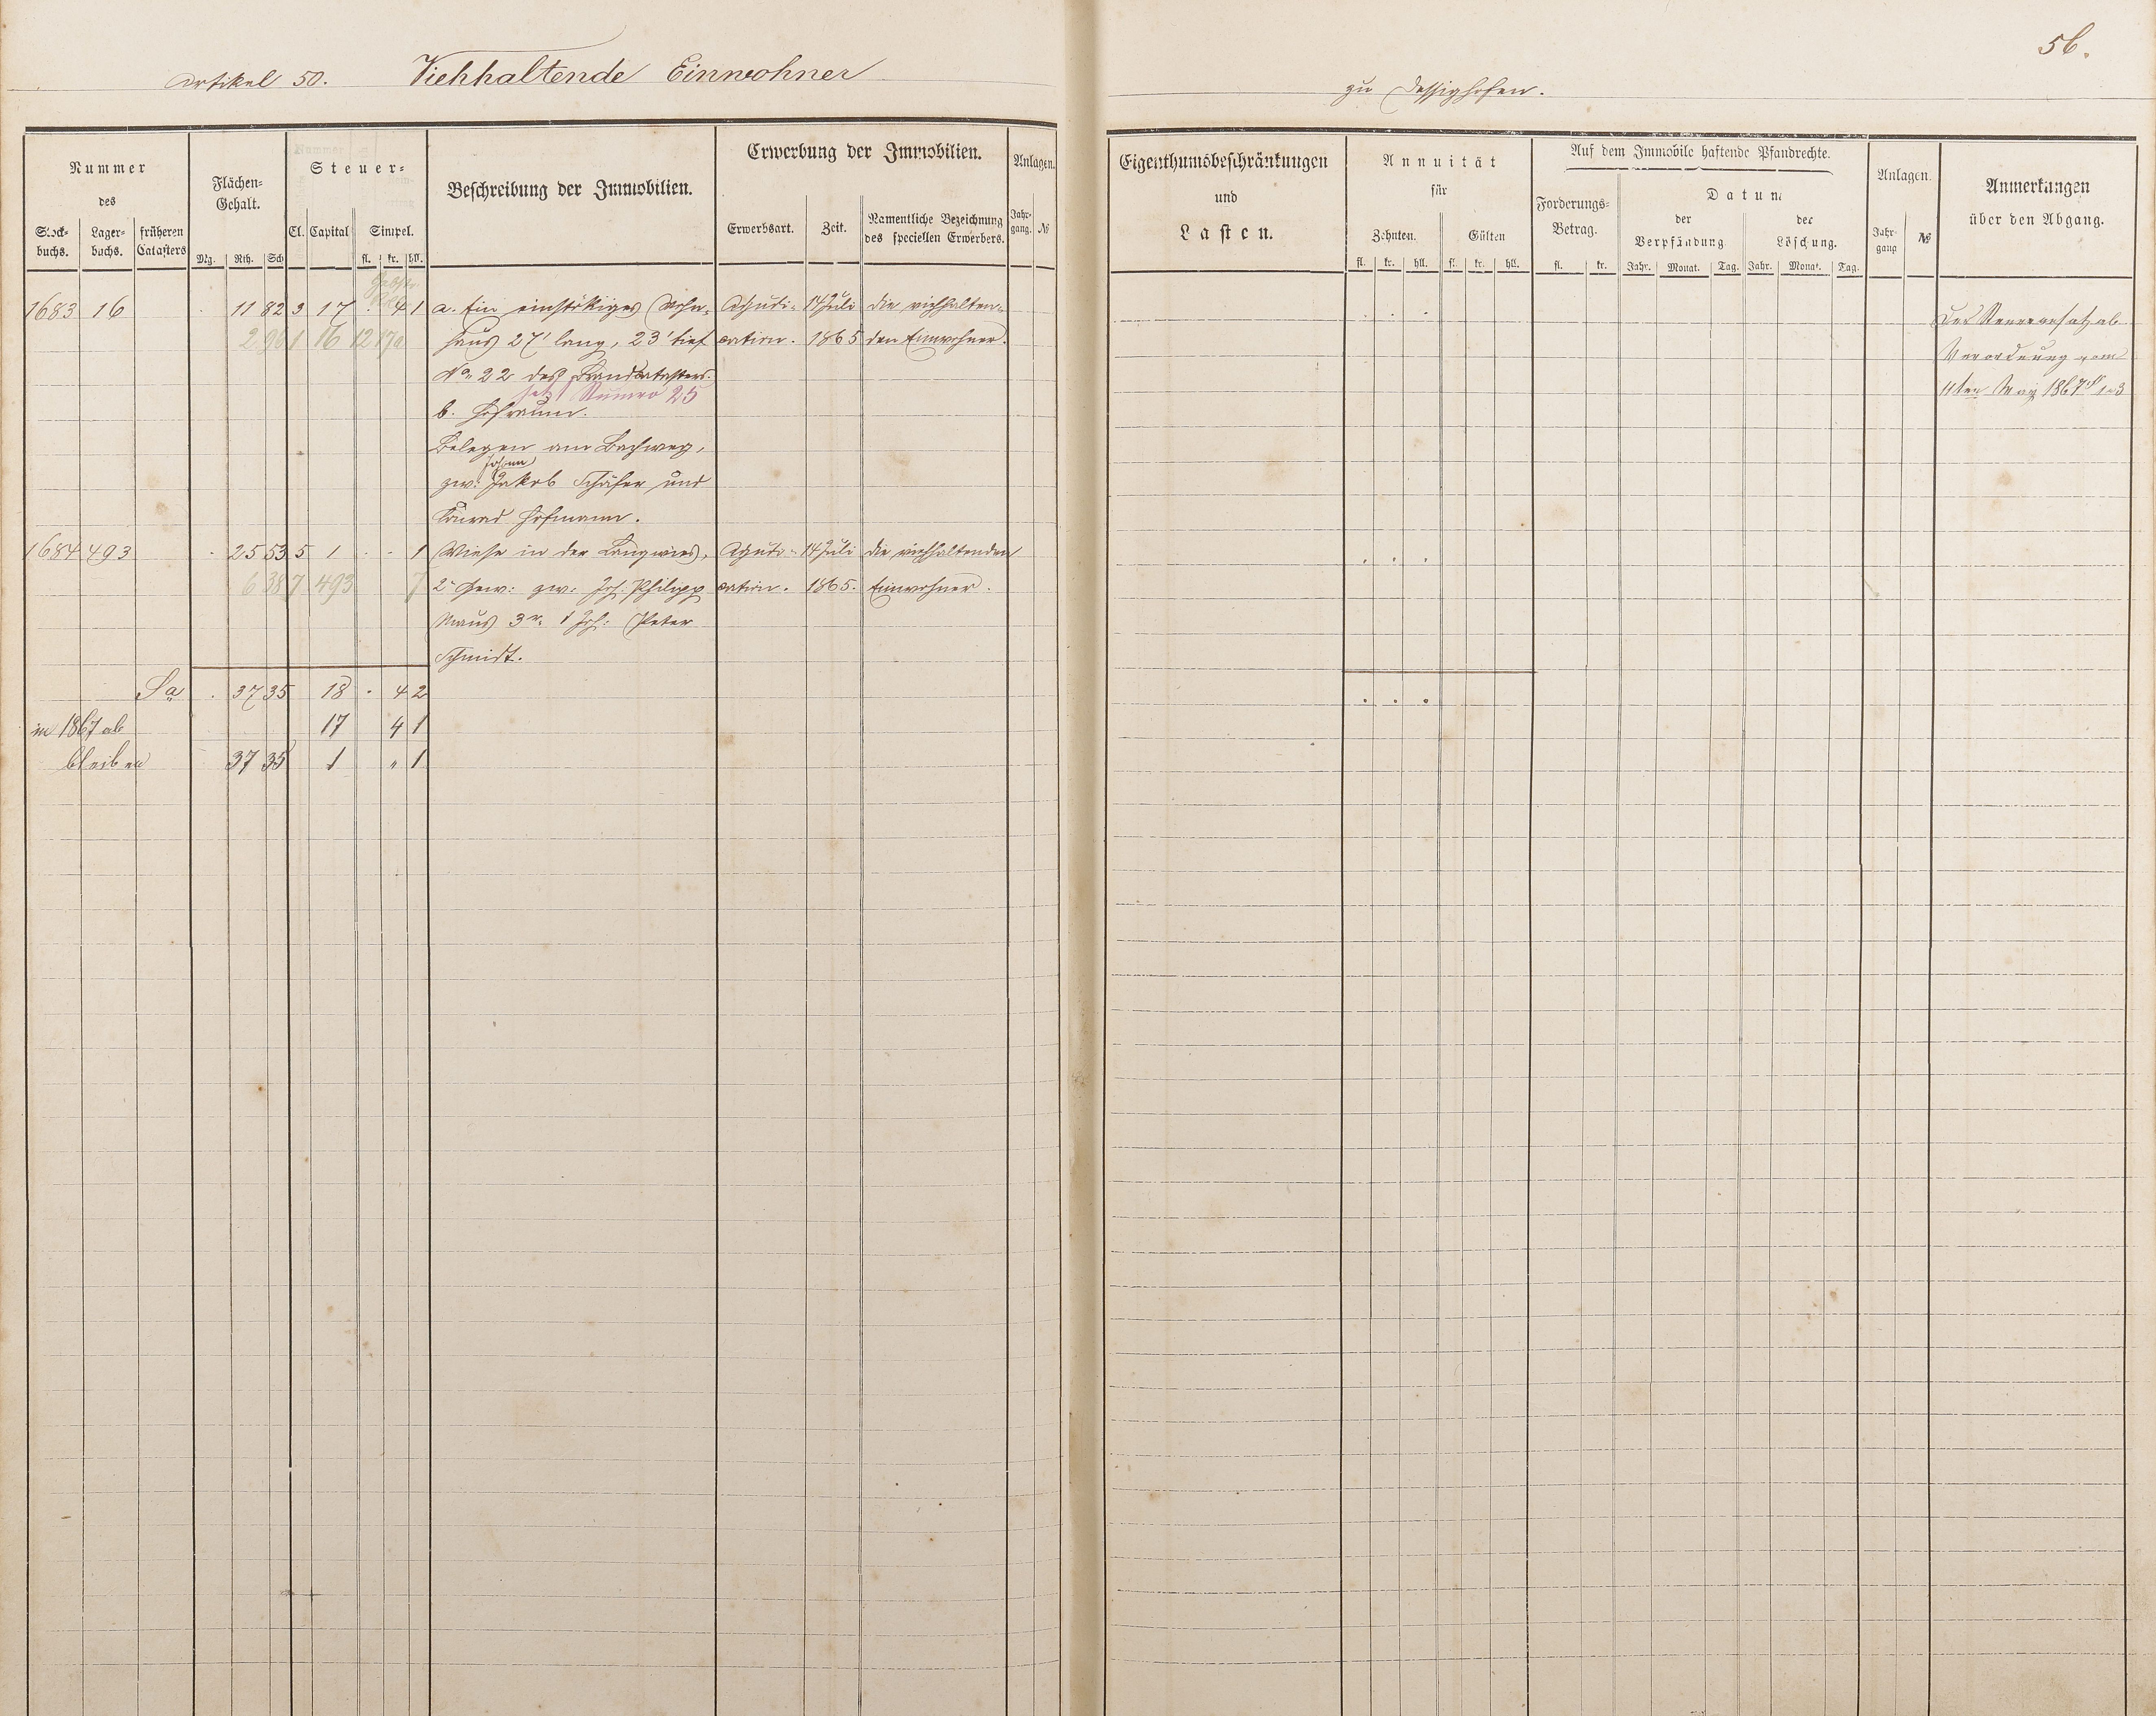 56.
Artikel 50. Viehhaltende Einwohner
zu Dessighofen.
Nummer
des
Stock-
buchs.
Lager-
buchs.
früheren
Catasters
Flächen-
Gehalt.
Mg. Rth. Sch
Steuer-
Cl. Capital Simpel.
fl. kr. hll.
Beschreibung der Immobilien.
Erwerbung der Immobilien.
Erwerbsart. Zeit. Namentliche Bezeichnung
des speciellen Erwerbers.
Anlagen.
Jahr-
gang. №
1683 16 . 11 82 3 17 . 4 1 a. Ein einstökiges Wohn- Adjudi- 14 Juli die viehhalten-
2 96 1 16 12 haus 27' lang, 23' tief cation. 1865 den Einwohner.
No 22 des Brandcatasters.
jetzt Numro 25
b. Hofraum.
Belegen am Bachweg,
Johann
zw: Jakob Schäfer und
Konrad Hofmann.
1684 493 . 25 53 5 1 . . 1 Wiese in der Langwies, Adjudi- 14 Juli die viehhaltenden
6 38 7 493 7 2r Gew: zw: Joh: Philipp cation. 1865. Einwohner.
Maus 3r. & Joh: Peter
Schmidt.
Sa . 37 35 18 . 4 2
in 1867 ab 17 4 1
bleiben 37 35 1 " 1
Eigenthumsbeschränkungen
und
Lasten.
Annuität
für
Zehnten. Gülten
fl. kr. hll. fl. kr. hll.
Auf dem Immobile haftende Pfandrechte.
Forderungs-
Betrag.
fl. kr.
Datum
der
Verpfändung
der
Löschung.
Jahr. Monat. Tag. Jahr. Monat. Tag.
Anlagen.
Jahr-
gang №
Anmerkungen
über den Abgang.
Der Steueransatz ab
Verordnung vom
11ten May 1867